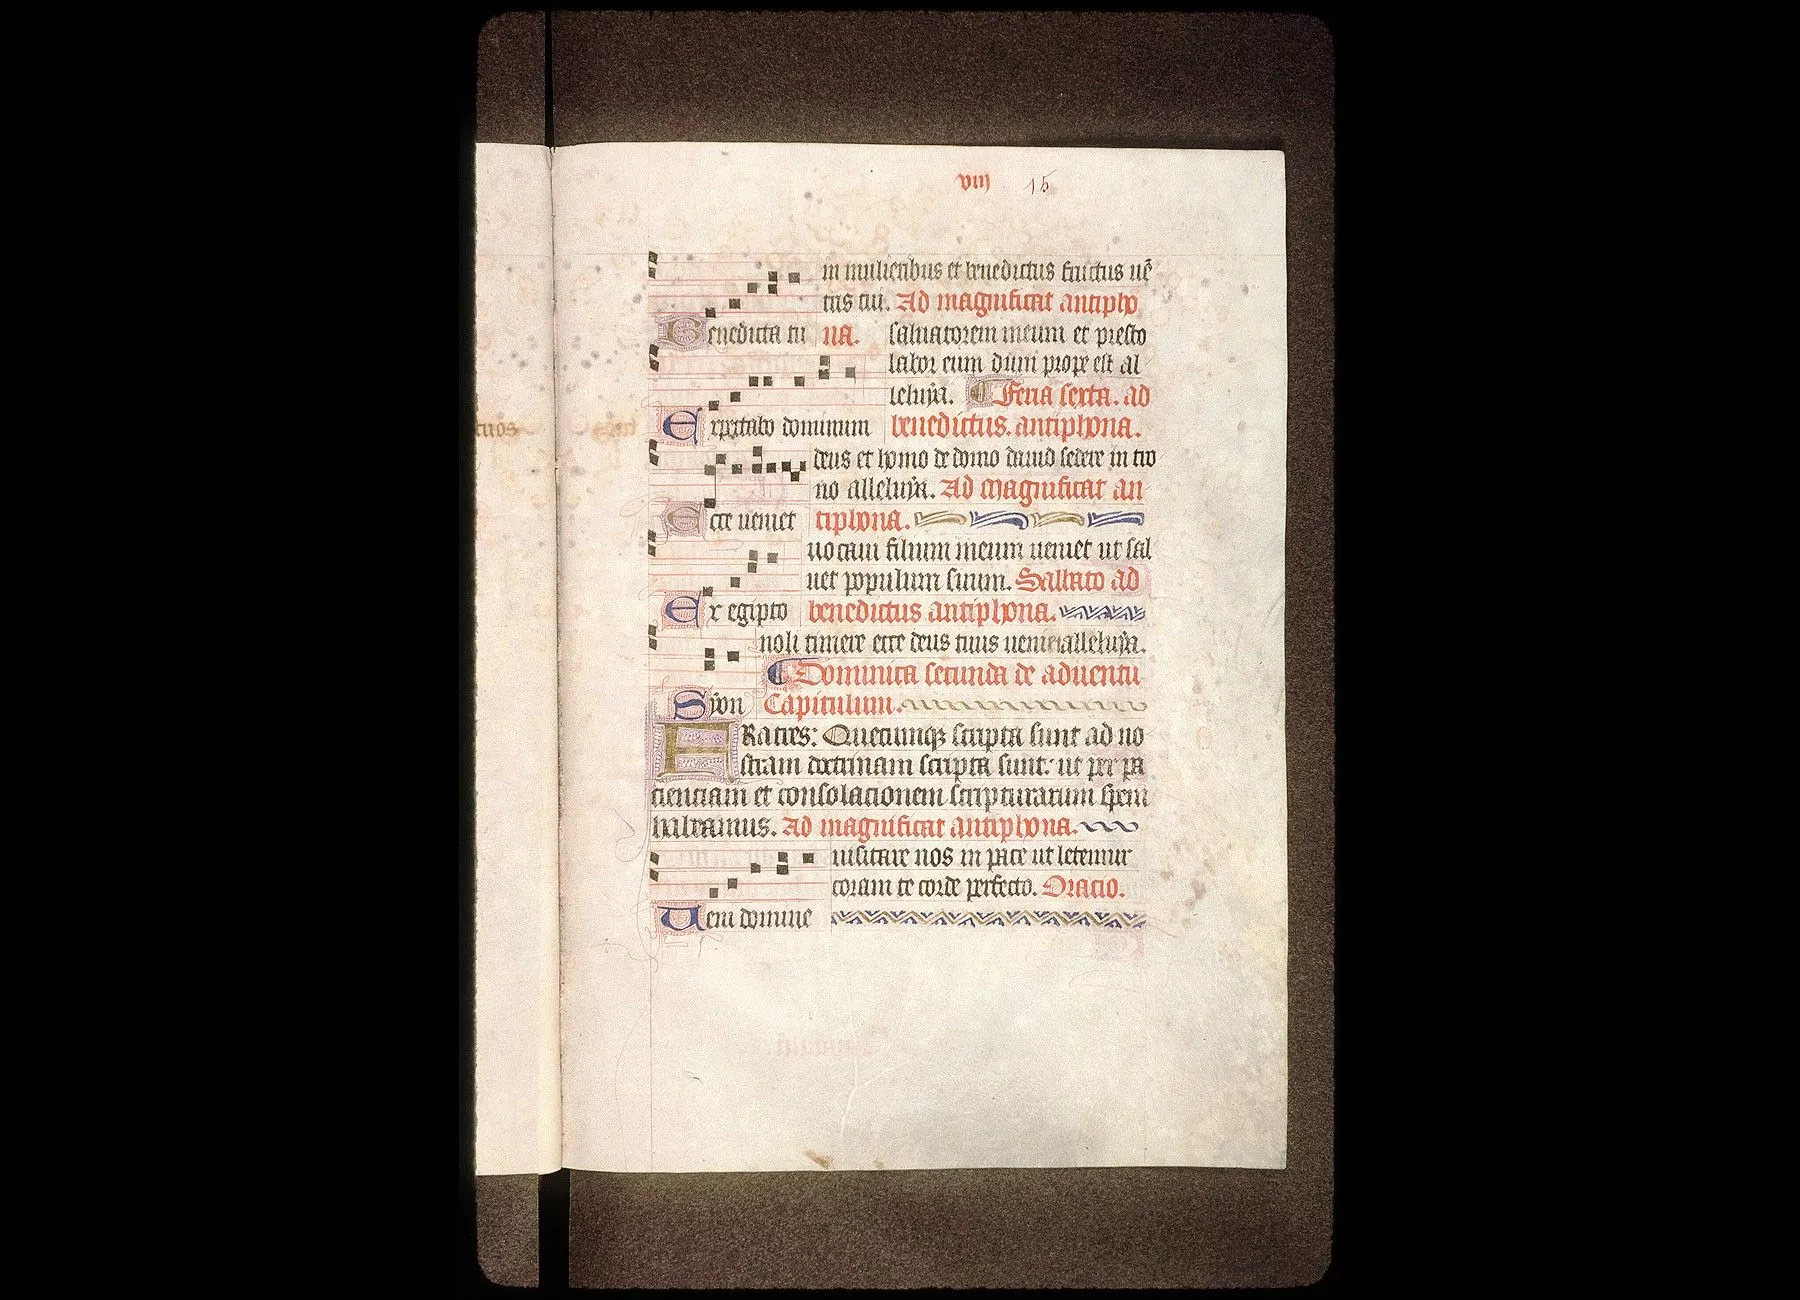 viij 15
in mulieribus et benedictus fructus uē
tris tui. Ad magnificat antipho
Benedicta tu na. saluatorem meum et presto
labor eum dum prope est al
leluÿa. Feria sexta. ad
Expectabo dominum benedictus. antiphona.
deus et homo de domo dauid sedere in tro
no alleluÿa. Ad magnificat an
Ecce ueniet tiphona.
uocaui filium meum ueniet ut sal
uet populum suum. Sabbato ad
Ex egipto benedictus antiphona.
noli timere ecce deus tuus ueniet alleluÿa.
Dominica secunda de aduentu
Sÿon Capitulum.
FRatres: Quecumqꝫ scripta sunt ad no
stram doctrinam scripta sunt: ut per pa
cienciam et consolacionem scripturarum spem
habeamus. Ad magnificat antiphona.
uisitare nos in pace ut letemur
coram te corde perfecto. Oracio.
Ueni domine
tuos